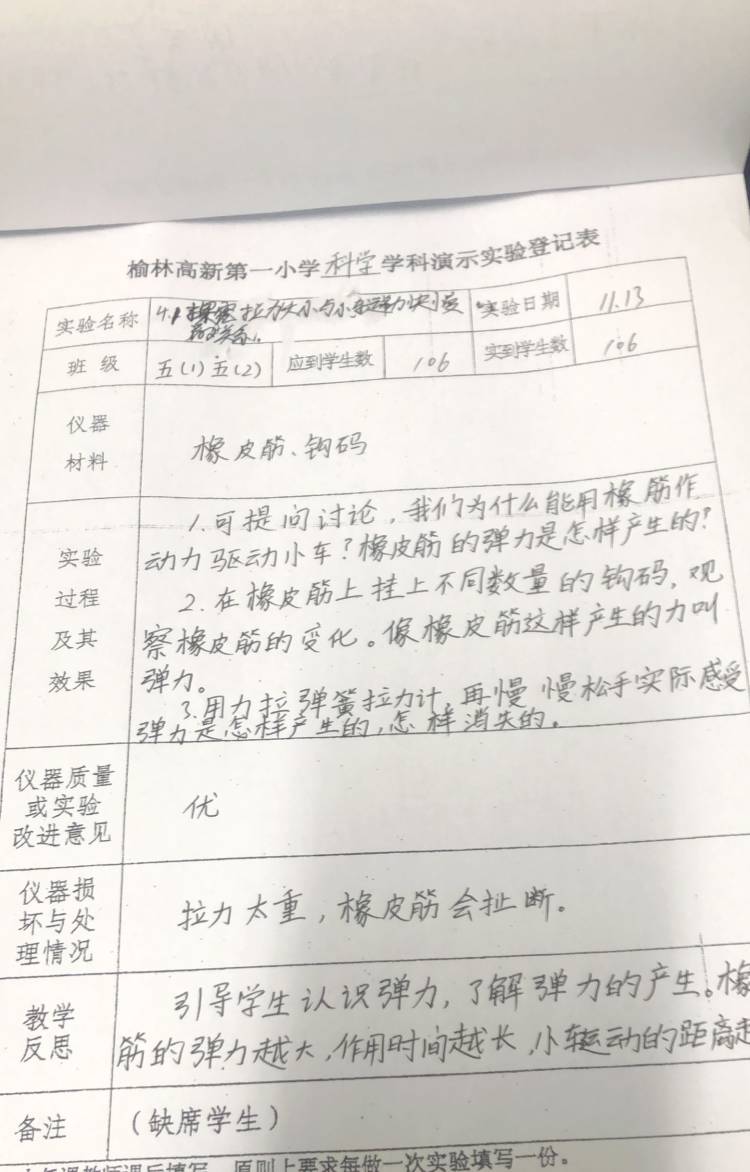 榆林高新第一小学科学学科演示实验登记表
实验名称 4.1 探究拉力大小与小车运动快慢 实验日期 11.13
的关系。
班 级 五(1)五(2) 应到学生数 106 实到学生数 106
仪器
材料
橡皮筋、钩码
实验
过程
及其
效果
1.可提问讨论,我们为什么能用橡筋作
动力驱动小车?橡皮筋的弹力是怎样产生的?
2.在橡皮筋上挂上不同数量的钩码,观
察橡皮筋的变化。像橡皮筋这样产生的力叫
弹力。
3.用力拉弹簧拉力计,再慢慢松手实际感受
弹力是怎样产生的,怎样消失的。
仪器质量
或实验
改进意见
优
仪器损
坏与处
理情况
拉力太重,橡皮筋会扯断。
教学
反思
引导学生认识弹力,了解弹力的产生。橡
筋的弹力越大,作用时间越长,小车运动的距离越
备注 (缺席学生)
任课教师课后填写,原则上要求每做一次实验填写一份。